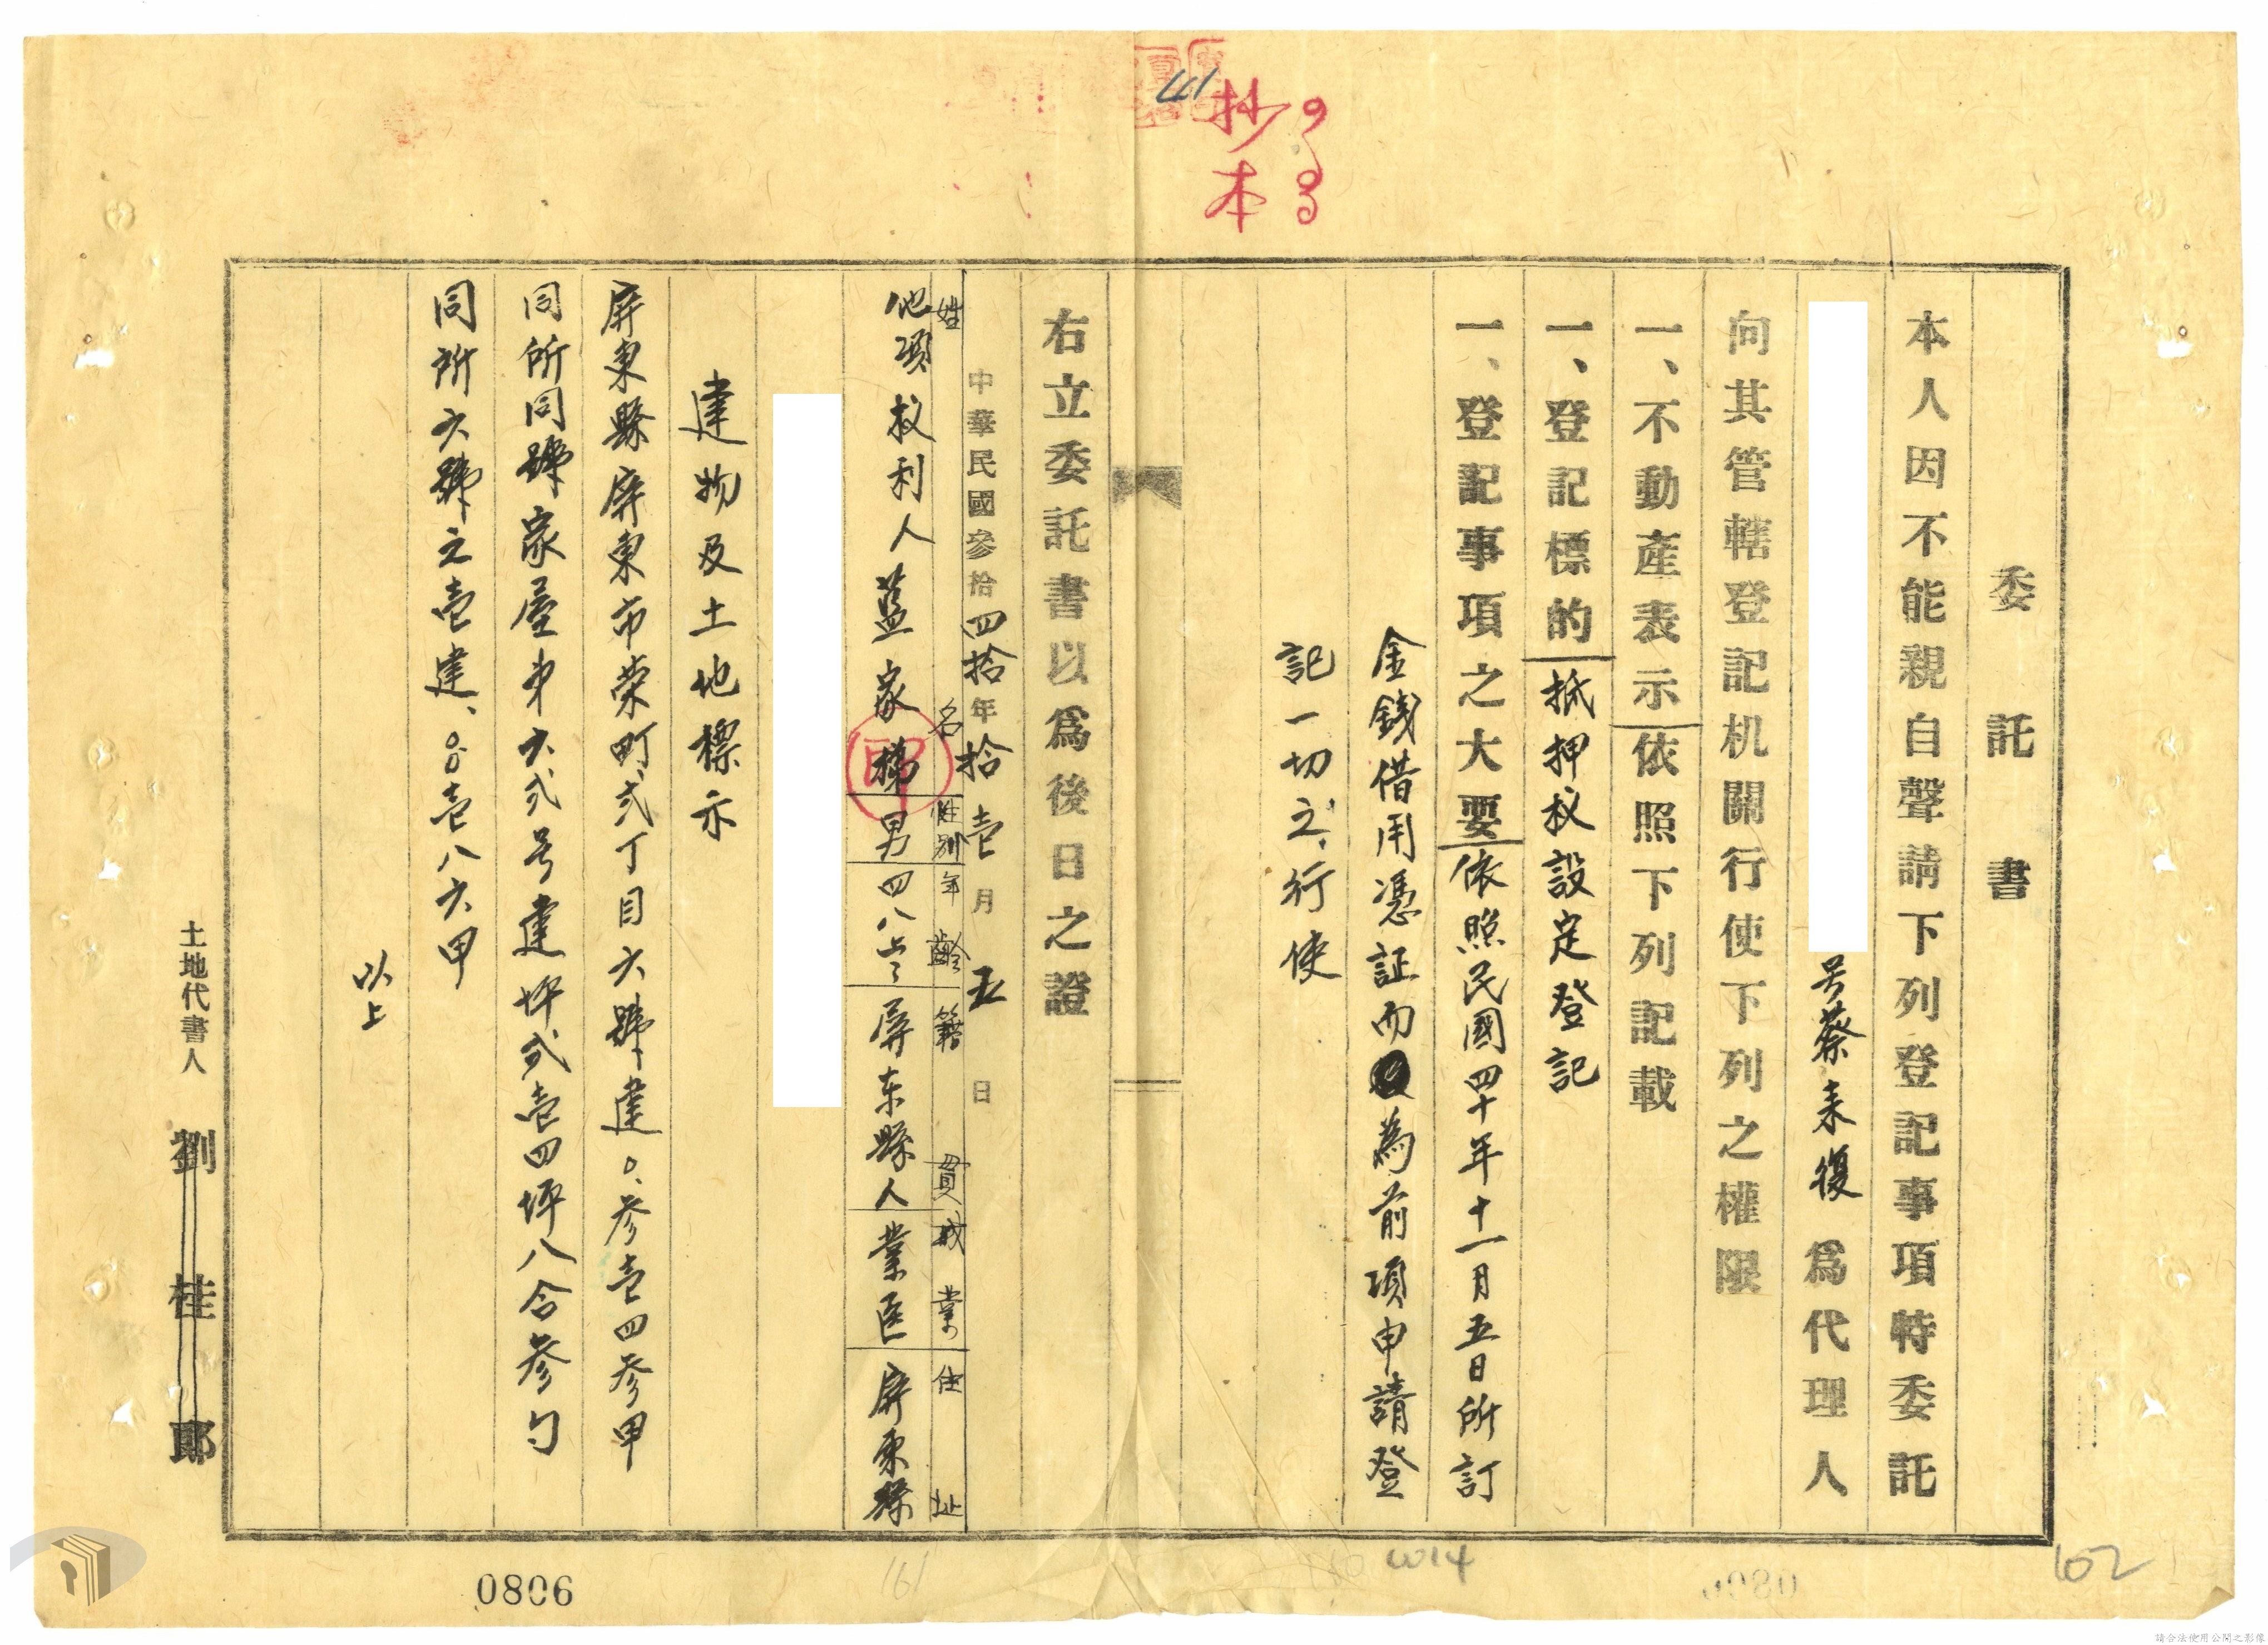 抄本
委託書
本人因不能親自聲請下列登記事項特委託
号蔡来復為代理人
向其管轄登記机關行使下列之權限
一、不動產表示依照下列記載
一、登記標的抵押权設定登記
一、登記事項之大要依照民國四十年十一月五日所訂
金銭借用憑証而為前項申請登
記一切之行使
右立委託書以為後日之證
中華民國參拾四拾年拾壱月五日
姓名 性別 年齡 籍貫 職業 住址
他項权利人藍家 男 四八 屏东縣人 業医 屏東縣
建物及土地標示
屏東縣屏東市榮町弍丁目六號建0.参壱四参甲
同所同號家屋第六弍号建坪弍壱四坪八合参勺
同所六號之壱建、0.0壱八六甲
以上
土地代書人 劉桂郎
0806
102